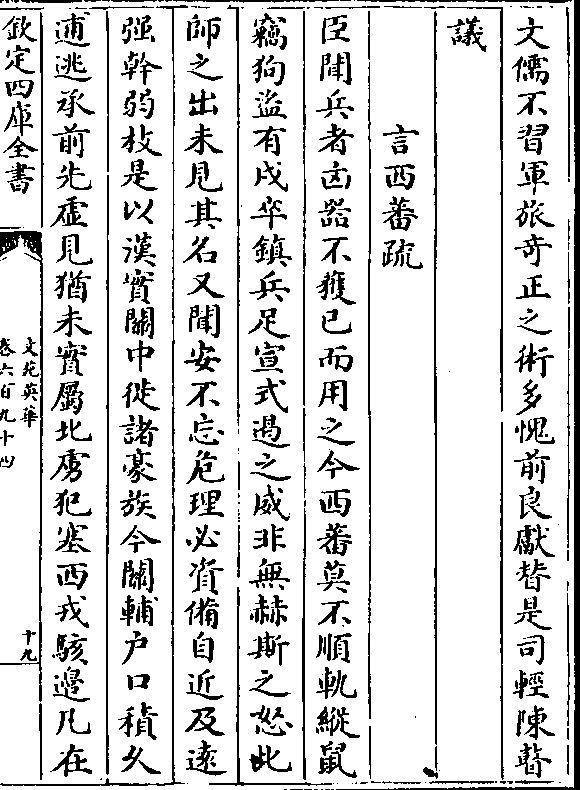 文儒不習軍旅奇正之術多愧前良獻替是司輕陳瞽
議
言西蕃疏
臣聞兵者凶器不獲已而用之今西蕃莫不順軌縱鼠
竊狗盜有戍卒鎮兵足宣式遏之威非無赫斯之怒此
師之出未見其名又聞安不忘危理必資備自近及遠
强幹弱枝是以漢實關中徙諸豪族今關輔户口積久
逋逃承前先虛見猶未實屬北虜犯塞西戎駭邊凡在
欽定四庫全書
文苑英華
卷六百九十四
十九